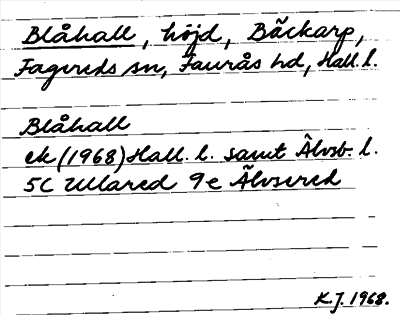 Blåhall, höjd, Bäckarp,
Fagereds sn, Faurås hd, Hall. l.
Blåhall
ek (1968) Hall. l. samt Älvsb. l.
5C Ullared 9e Älvsered
K.J. 1968.